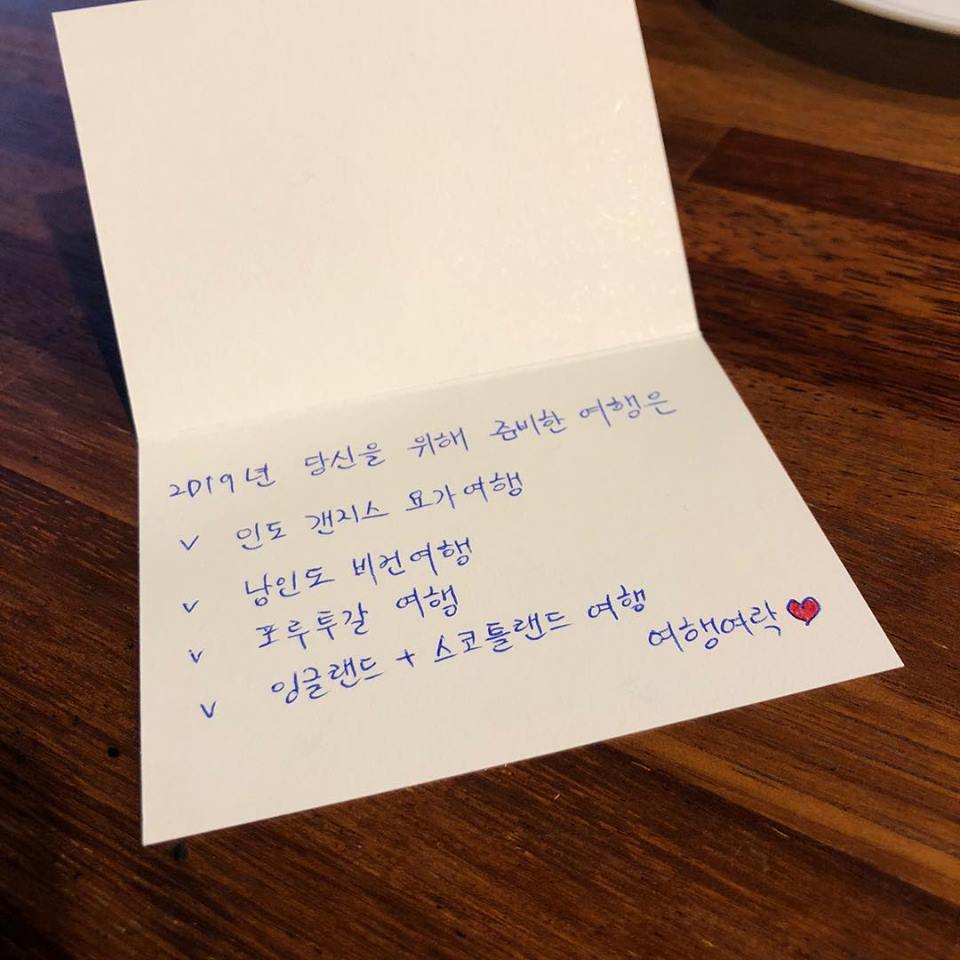 2019년 당신을 위해 준비한 여행은
v 인도 갠지스 요가여행
v 남인도 비건여행
v 포루투갈 여행
v 잉글랜드 + 스코틀랜드 여행
여행여락 ♥